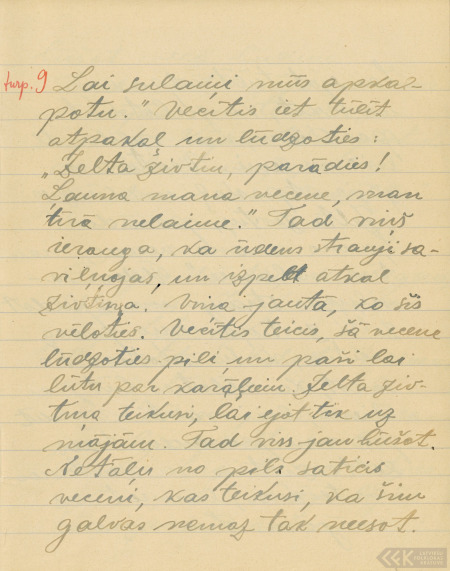 turp. 9 Lai sulaiņi mūs apka-
potu." Vecītis iet tūlīt
atpakaļ un lūdzoties:
"Zelta zivtiņ, parādies!
Ļauna mana vecene, man
tīrā nelaime." Tad viņš
ierauga, ka ūdens strauji sa-
viļņojas, un izpeld atkal
zivtiņa. Viņa jautā, ko šis
vēloties. Vecītis teicis, šā vecene
lūdzoties pili, un paši lai
būtu par karaļiem. Zelta ziv-
tiņa teikusi, lai ejot tik uz
mājām. Tad viss jau būšot.
Netālu no pils saticis
veceni, kas teikusi, ka šim
galvas nemaz tak neesot.
LATVIEŠU
FOLKLORAS
KRĀTUVE